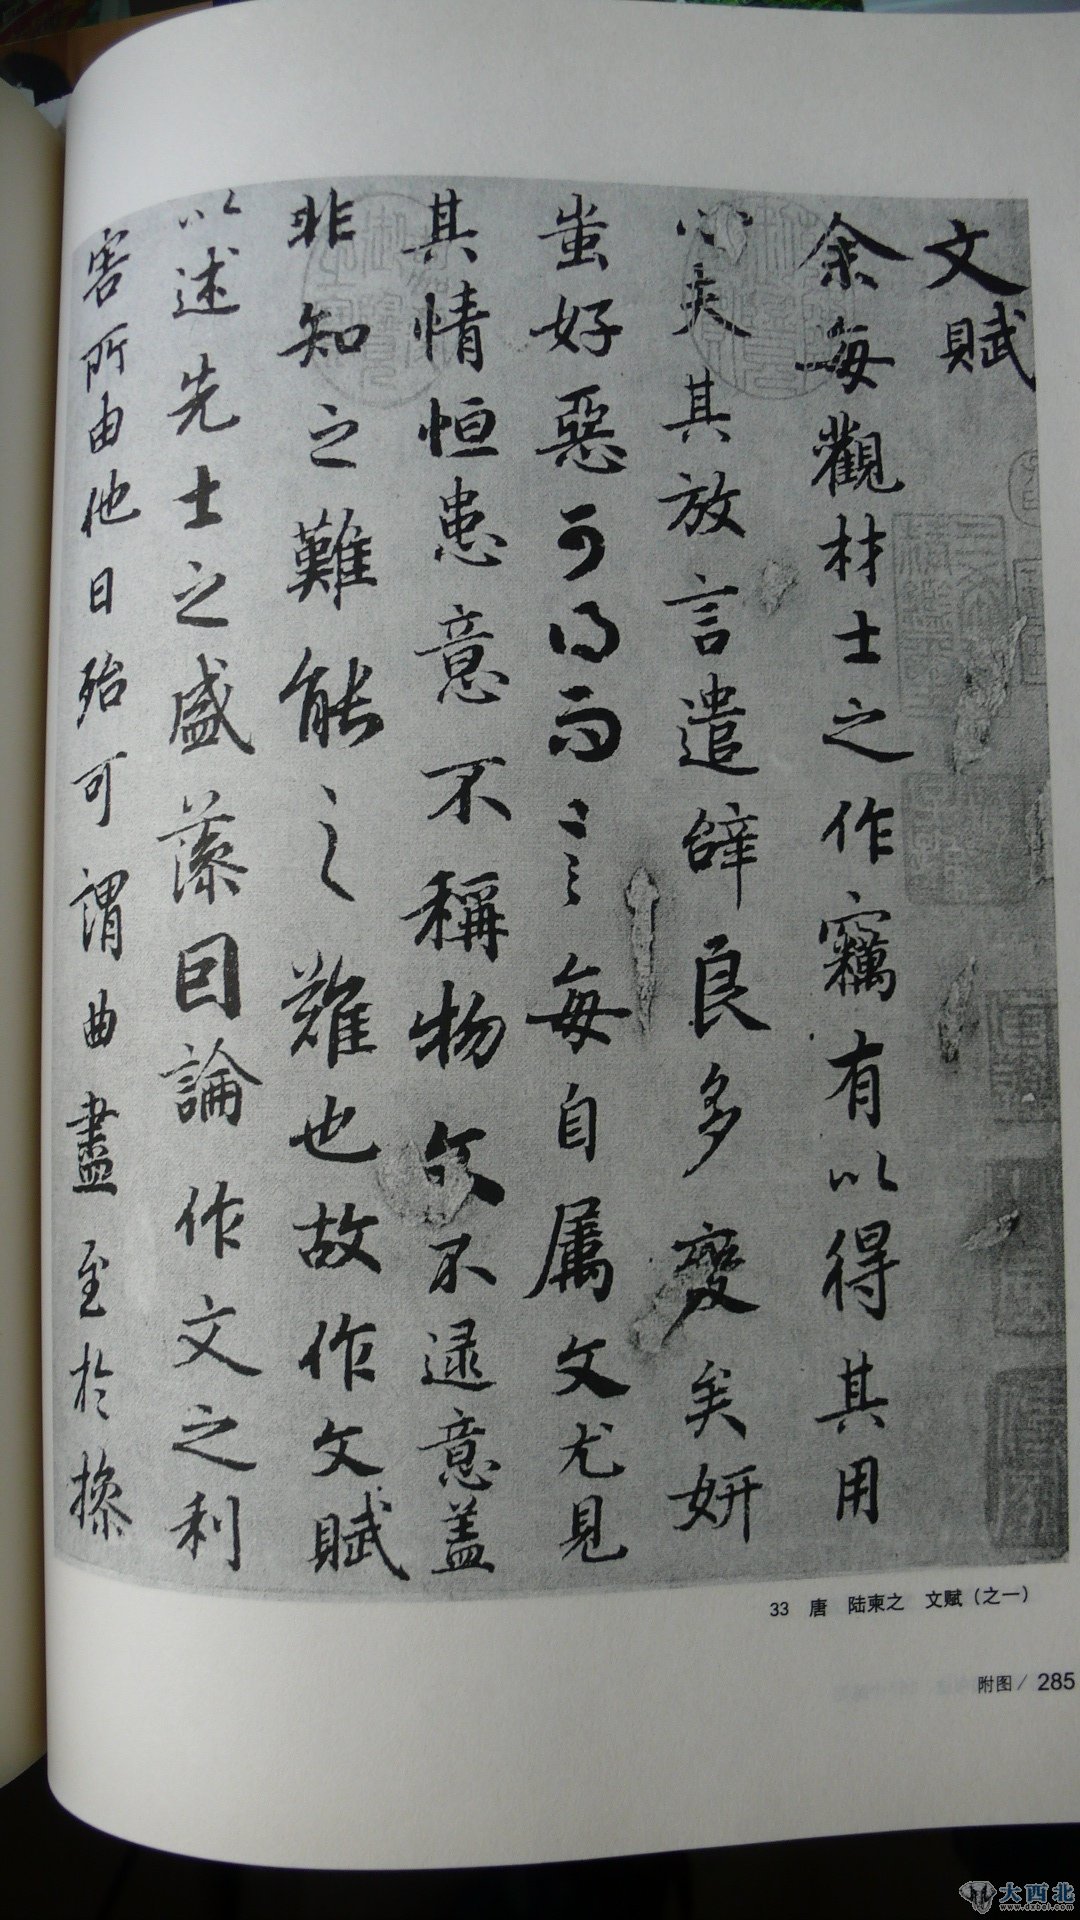 文賦
余每觀材士之作竊有以得其用
心夫其放言遣辭良多變矣妍
蚩好惡可得而言每自屬文尤見
其情恒患意不稱物文不逮意蓋
非知之難能之難也故作文賦
以述先士之盛藻因論作文之利
害所由他日殆可謂曲盡至於操
33 唐 陆柬之 文赋（之一）
附图/ 285
大西北
www.dxbei.com